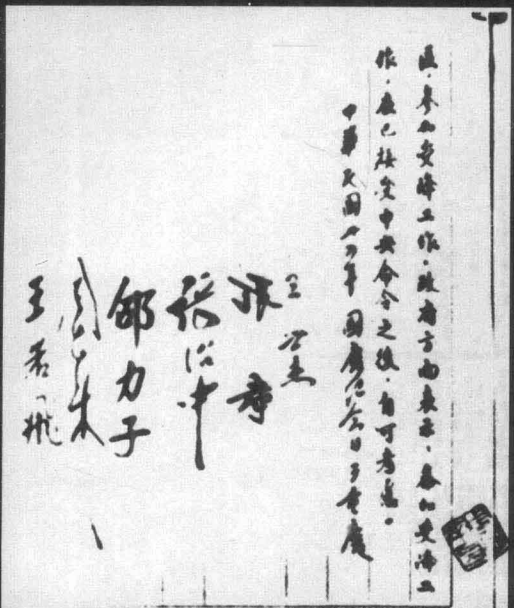 區，參加受降工作，政府方面表示，參加受降工
作，在已接受中央命令之後，自可考慮。
中華民國卅四年國慶紀念日於重慶
王世杰
張羣
張治中
邵力子
周恩來
王若飛